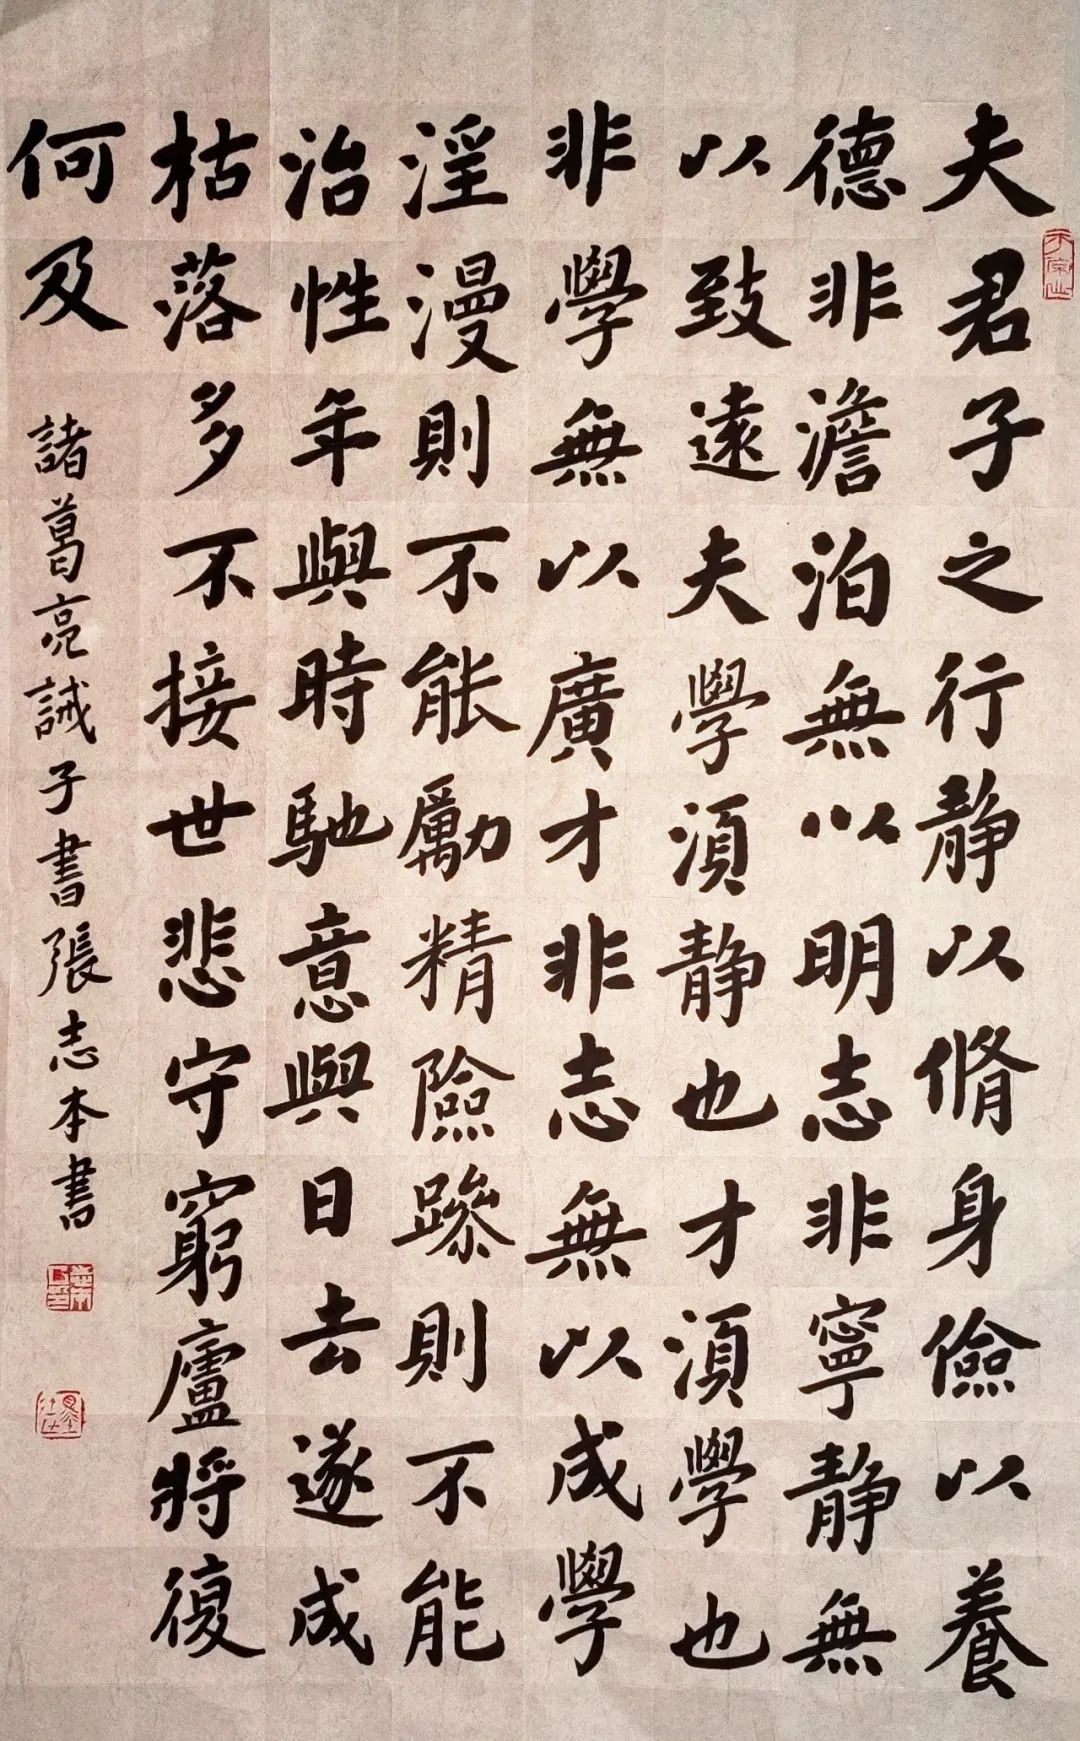 夫君子之行静以脩身儉以養
德非澹泊無以明志非寧静無
以致遠夫學須静也才須學也
非學無以廣才非志無以成學
淫漫則不能勵精險躁則不能
治性年與時馳意與日去遂成
枯落多不接世悲守窮廬將復
何及
諸葛亮誡子書張志本書